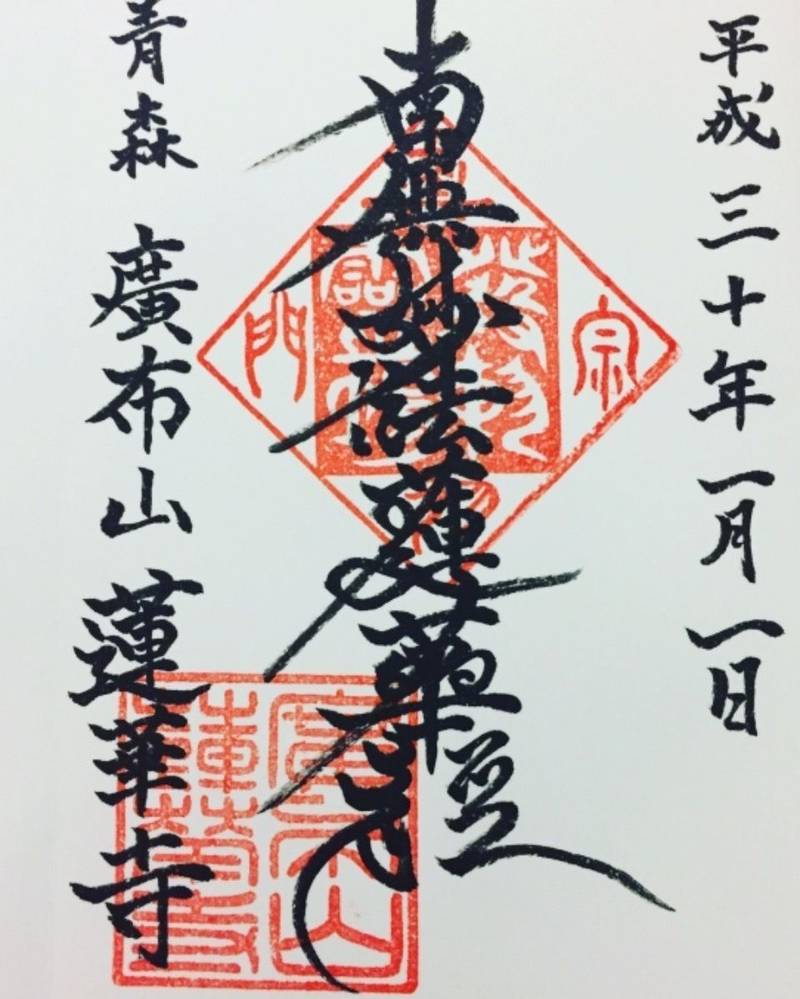 平成三十年一月一日
南無妙法蓮華経
青森 廣布山 蓮華寺
宗
門
廣布山
蓮華寺